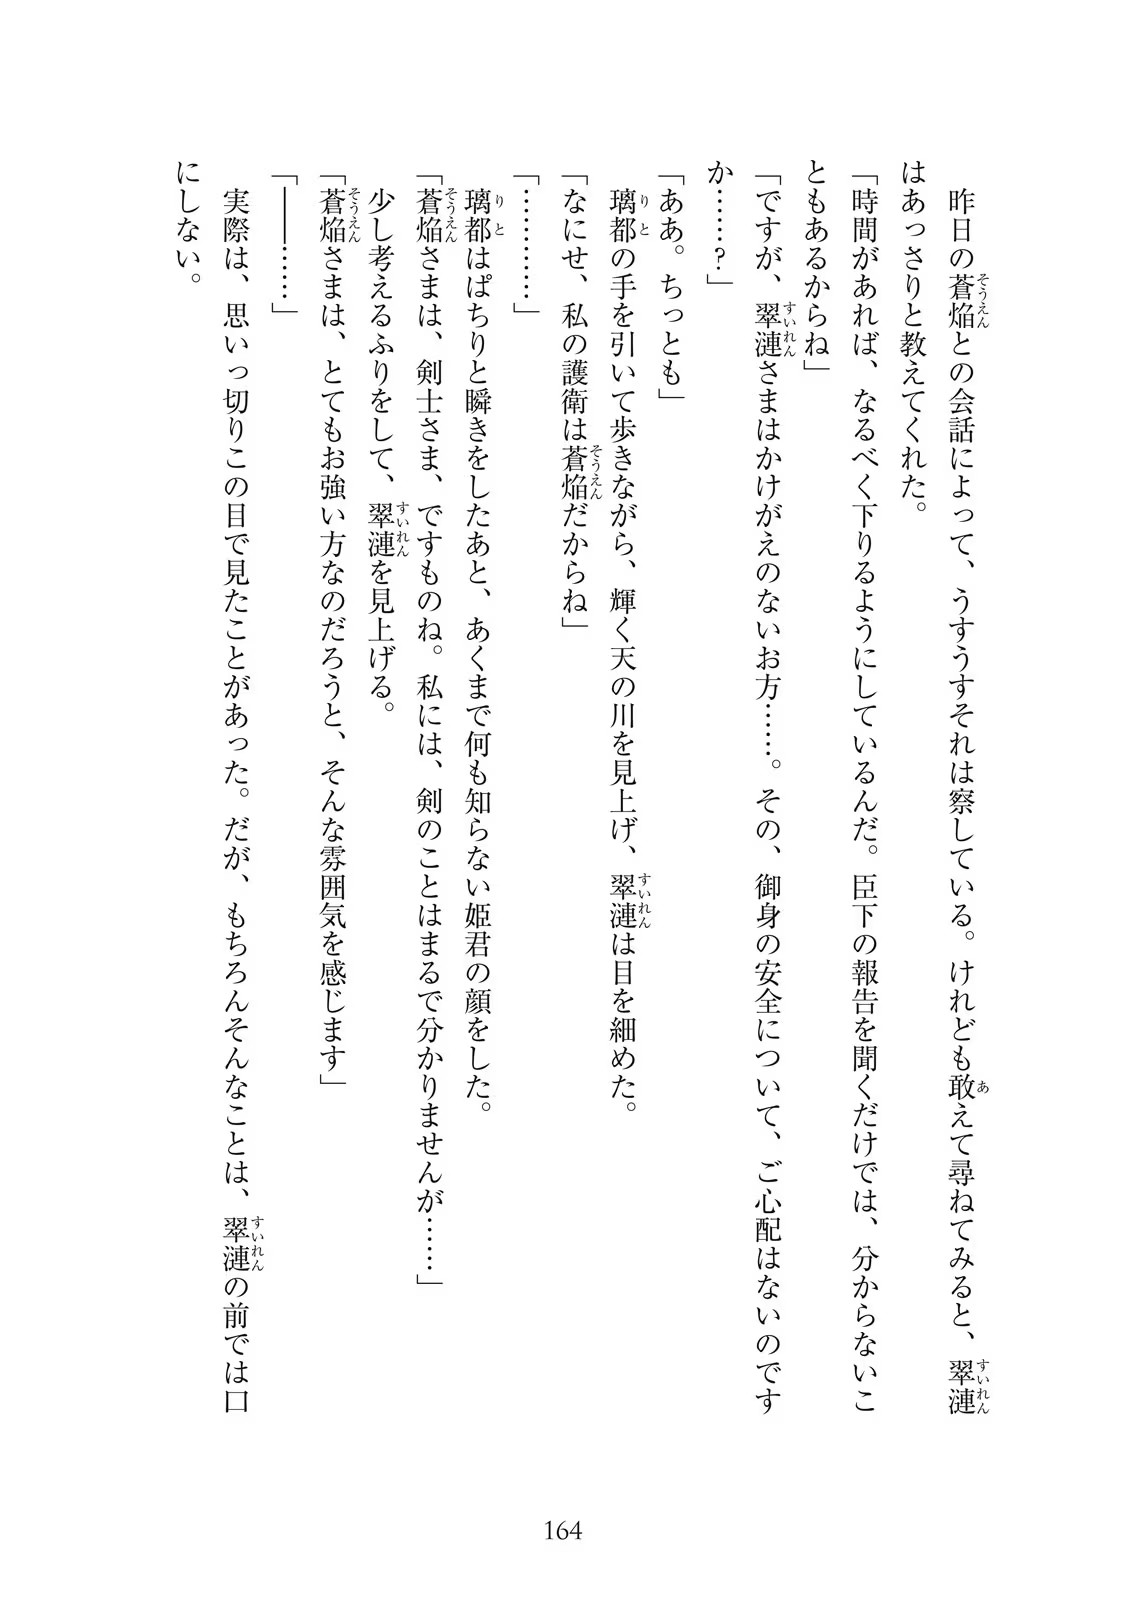 昨日の蒼焔との会話によって、うすうすそれは察している。けれども敢えて尋ねてみると、翠漣
はあっさりと教えてくれた。
「時間があれば、なるべく下りるようにしているんだ。臣下の報告を聞くだけでは、分からないこ
ともあるからね」
「ですが、翠漣さまはかけがえのないお方……。その、御身の安全について、ご心配はないのです
か……？」
「ああ。ちっとも」
璃都の手を引いて歩きながら、輝く天の川を見上げ、翠漣は目を細めた。
「なにせ、私の護衛は蒼焔だからね」
「…………」
璃都はぱちりと瞬きをしたあと、あくまで何も知らない姫君の顔をした。
「蒼焔さまは、剣士さま、ですものね。私には、剣のことはまるで分かりませんが……」
少し考えるふりをして、翠漣を見上げる。
「蒼焔さまは、とてもお強い方なのだろうと、そんな雰囲気を感じます」
「――……」
実際は、思いっ切りこの目で見たことがあった。だが、もちろんそんなことは、翠漣の前では口
にしない。
164